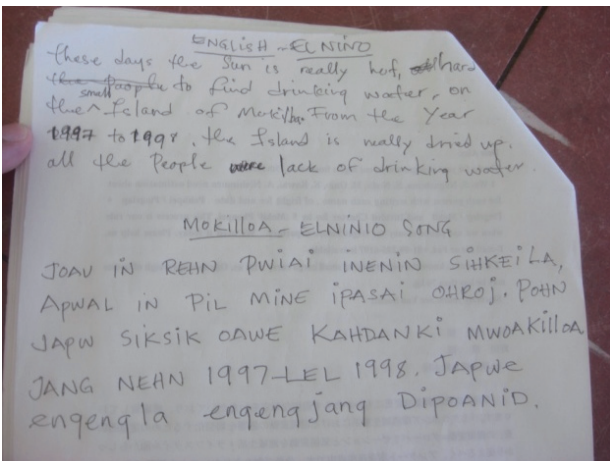 ENGLISH - EL NINO
these days the Sun is really hot, hard
the people to find drinking water, on
the small Island of Mokilloa. From the Year
1997 to 1998. the Island is really dried up.
all the People were lack of drinking water.
MOKILLOA - ELNINIO SONG
JOAU IN REHN PWIAI INENIN SIHKEILA,
APWAL IN PIL MINE IPASAI OHROJ. POHN
JAPW SIKSIK OAWE KAHDANKI MWOAKILLOA
JANG NEHN 1997-LEL 1998. JAPWE
engengla engeng jang DIPOANID.